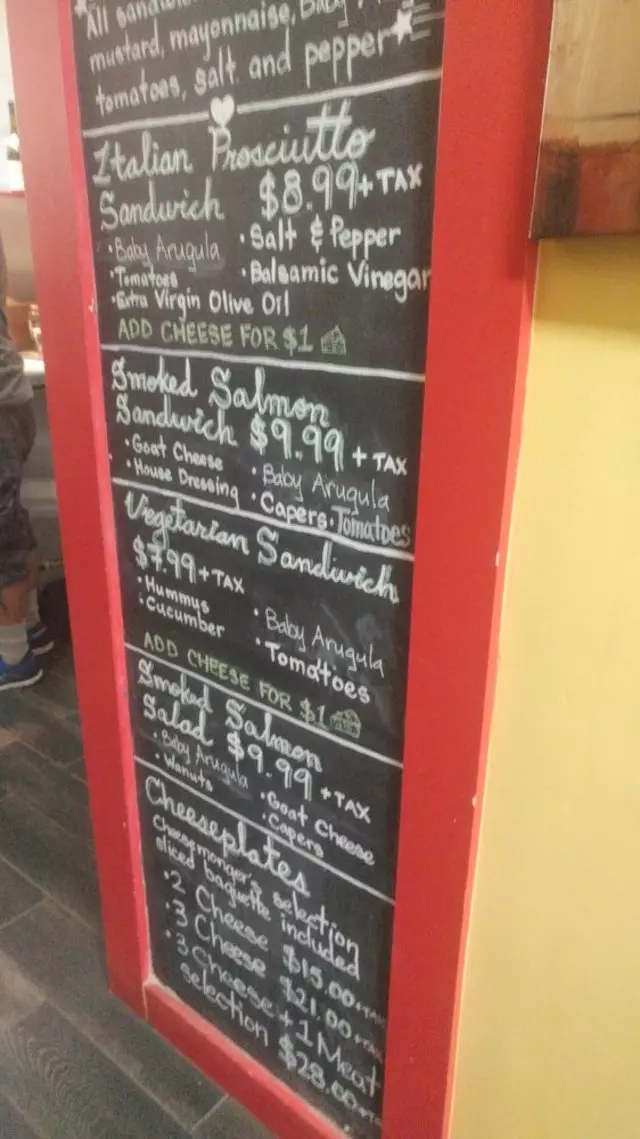 All sandwi
mustard, mayonnaise, Baby
tomatoes, salt and pepper
Italian Prosciutto
Sandwich $8.99 + TAX
• Baby Arugula • Salt & Pepper
• Tomatoes • Balsamic Vinegar
• Extra Virgin Olive Oil
ADD CHEESE FOR $1
Smoked Salmon
Sandwich $9.99 + TAX
• Goat Cheese • Baby Arugula
• House Dressing • Capers • Tomatoes
Vegetarian Sandwich
$7.99 + TAX
• Hummus • Baby Arugula
• Cucumber • Tomatoes
ADD CHEESE FOR $1
Smoked Salmon
Salad $9.99 + TAX
• Baby Arugula • Goat Cheese
• Wanuts • Capers
Cheeseplates
Cheesemonger's selection
sliced baguette included
• 2 Cheese $15.00 + TAX
• 3 Cheese $21.00 + TAX
• 3 Cheese + 1 Meat
selection $28.00 + T